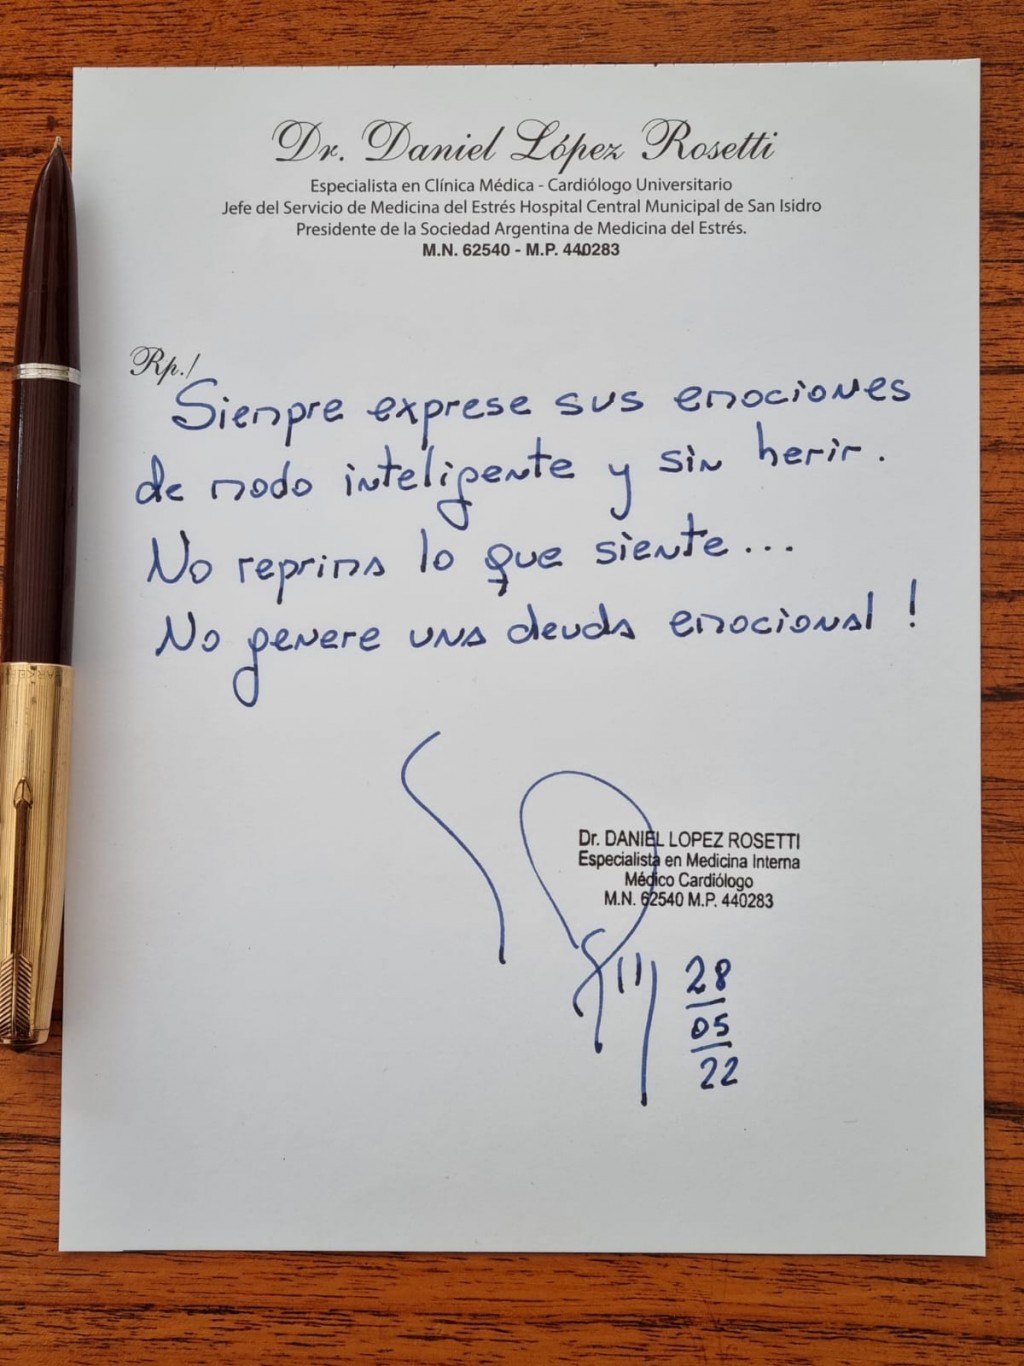 Dr. Daniel López Rosetti
Especialista en Clínica Médica - Cardiólogo Universitario
Jefe del Servicio de Medicina del Estrés Hospital Central Municipal de San Isidro
Presidente de la Sociedad Argentina de Medicina del Estrés.
M.N. 62540 - M.P. 440283
Rp./
Siempre exprese sus emociones
de modo inteligente y sin herir.
No reprima lo que siente...
No genere una deuda emocional!
Dr. DANIEL LOPEZ ROSETTI
Especialista en Medicina Interna
Médico Cardiólogo
M.N. 62540 M.P. 440283
28
05
22